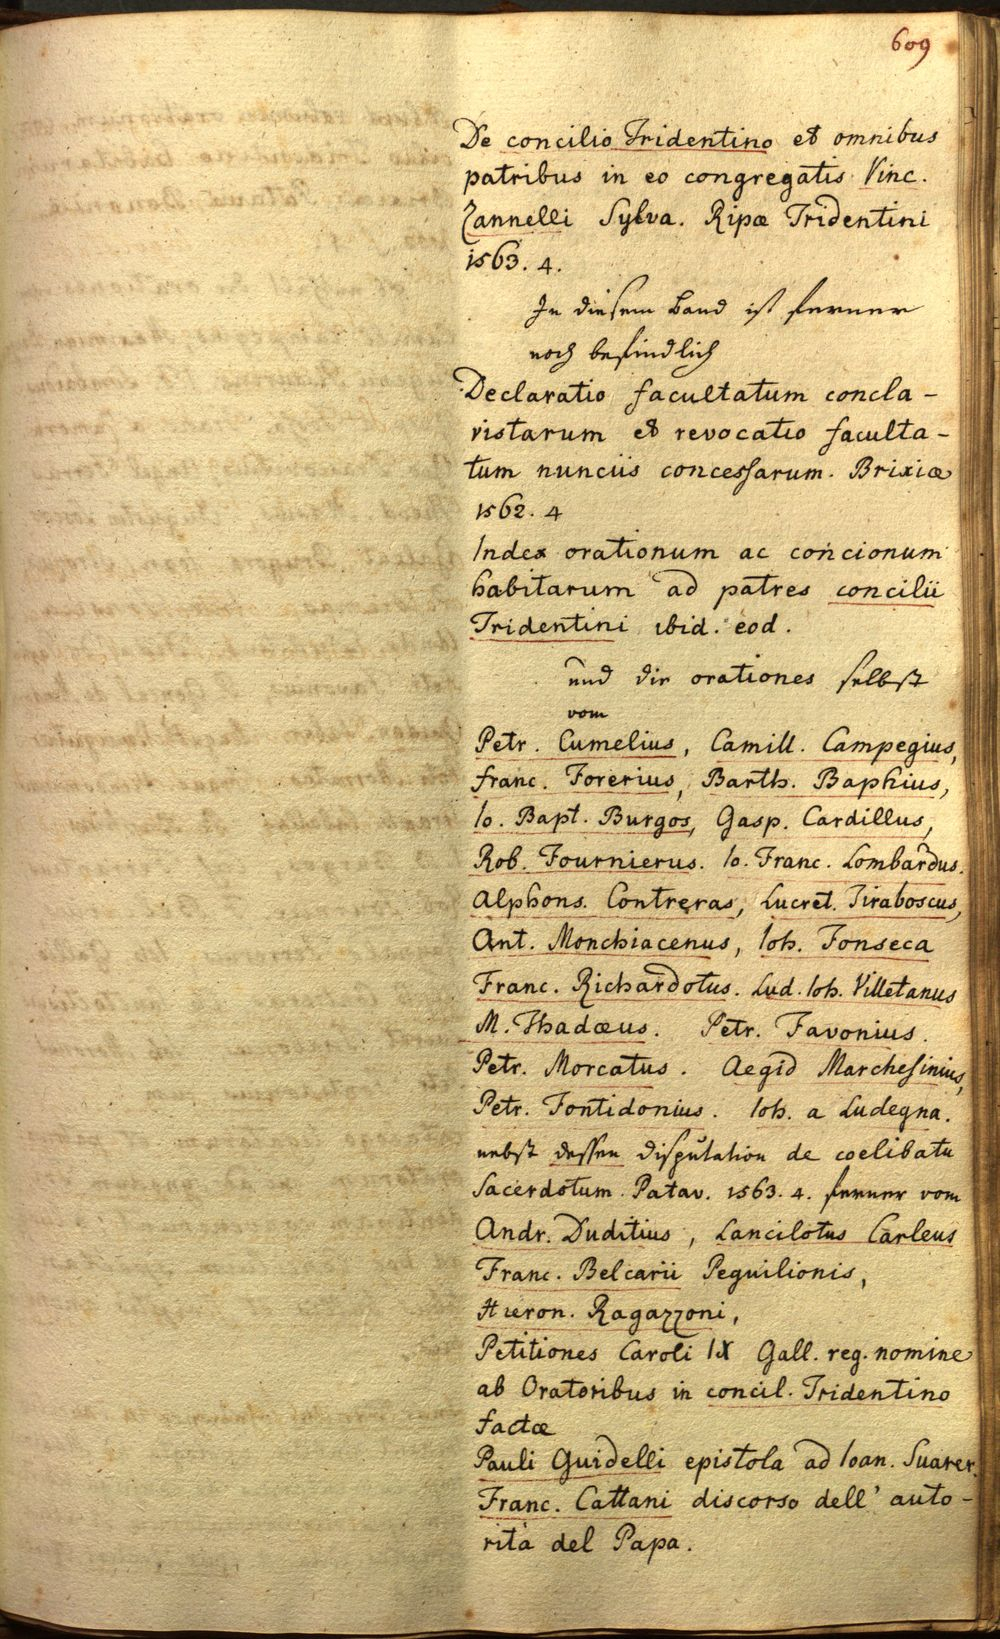 609
De concilio Tridentino et omnibus
patribus in eo congregatis Vinc.
Zannelli Sylva. Ripæ Tridentini
1563. 4.
In diesem Band ist ferner
noch befindlich
Declaratio facultatum concla-
vistarum et revocatio faculta-
tum nunciis concessarum. Brixiæ
1562. 4
Index orationum ac concionum
habitarum ad patres concilii
Tridentini ibid. eod.
und die orationes selbst
vom
Petr. Cumelius, Camill. Campegius,
Franc. Forerius, Barth. Baphius,
Io. Bapt. Burgos, Gasp. Cardillus,
Rob. Fournierus. Io. Franc. Lombardus.
Alphons. Contreras, Lucret. Tiraboscus,
Ant. Monchiacenus, Ioh. Fonseca
Franc. Richardotus. Lud. Ioh. Villetanus
M. Thadæus. Petr. Favonius.
Petr. Morcatus. Aegid Marchesinius,
Petr. Fontidonius. Ioh. a Ludegna.
nebst dessen disputation de coelibatu
Sacerdotum. Patav. 1563. 4. ferner vom
Andr. Duditius, Lancilotus Carleus
Franc. Belcarii Peguilionis,
Hieron. Ragazzoni,
Petitiones Caroli IX Gall. reg. nomine
ab Oratoribus in concil. Tridentino
factæ
Pauli Guidelli epistola ad Ioan. Suarer.
Franc. Cattani discorso dell' auto-
rità del Papa.